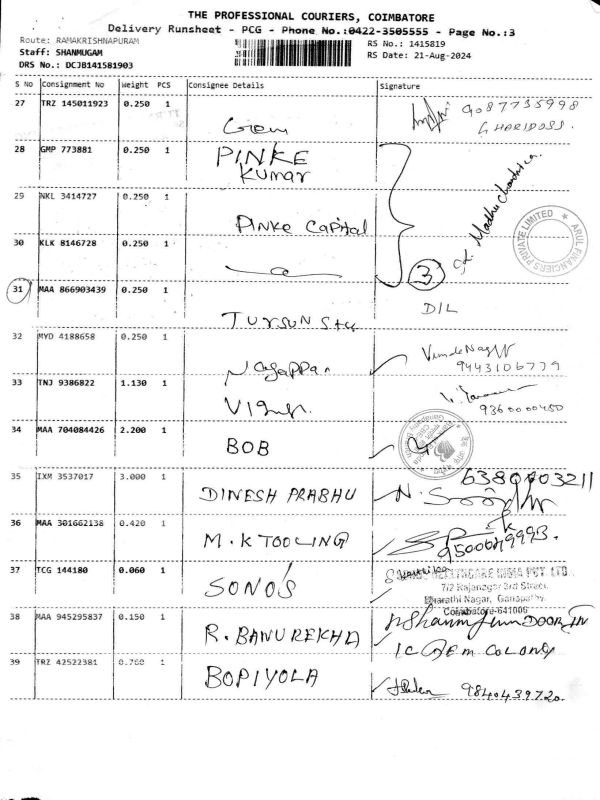 THE PROFESSIONAL COURIERS, COIMBATORE
Delivery Runsheet - PCG - Phone No.:0422-3505555 - Page No.:3
Route: RAMAKRISHNAPURAM
RS No.: 1415819
Staff: SHANMUGAM
RS Date: 21-Aug-2024
DRS No.: DCJB141581903
S No Consignment No Weight PCS Consignee Details Signature
27 TRZ 145011923 0.250 1 9087735998
Gem G HARIDOSS.
28 GMP 773881 0.250 1 PINKE
Kumar
29 NKL 3414727 0.250 1
Pinke Capital
30 KLK 8146728 0.250 1
3
ARUL FINANCIERS PRIVATE LIMITED
31 MAA 866903439 0.250 1
DIL
32 MYD 4188658 0.250 1
Nagappan 9443106779
33 TNJ 9386822 1.130 1
9360000450
34 MAA 704084426 2.200 1
BOB
35 IXM 3537017 3.000 1 6380803211
DINESH PRABHU
36 MAA 301662138 0.420 1
M.K TOOLING
37 TCG 144180 0.060 1
SONO'S 7/2 Rajanagar 3rd Street,
Bharathi Nagar, Ganapathy,
Coimbatore-641006
38 MAA 945295837 0.150 1
R. BANUREKHA COLONY
39 TRZ 42522381 0.760 1
BOPIYOLA 9840439720